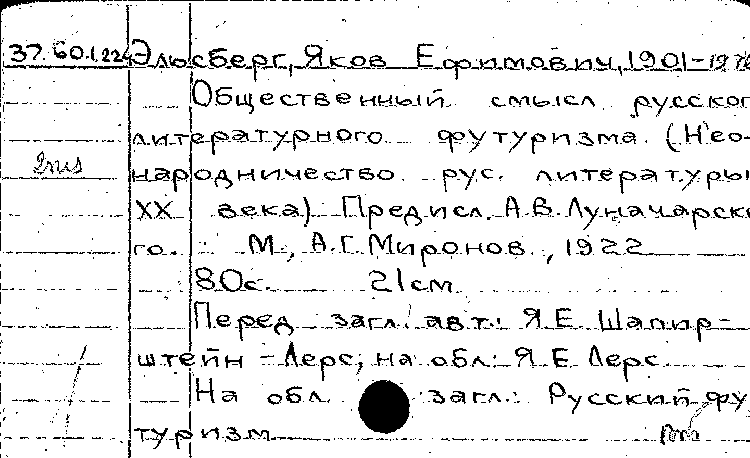 37.60.1.224 Эльсберг, Яков Ефимович, 1901-1976
Общественный смысл русског
литературного футуризма. (Нео-
народничество рус. литературы
XX века) Предисл. А.В. Луначарск
го. М., А.Г. Миронов, 1922
80с. 21см
Перед загл. авт.: Я.Е. Шапир-
штейн-Лерс, на обл: Я.Е. Лерс
На обл. загл.: Русский фу
туризм